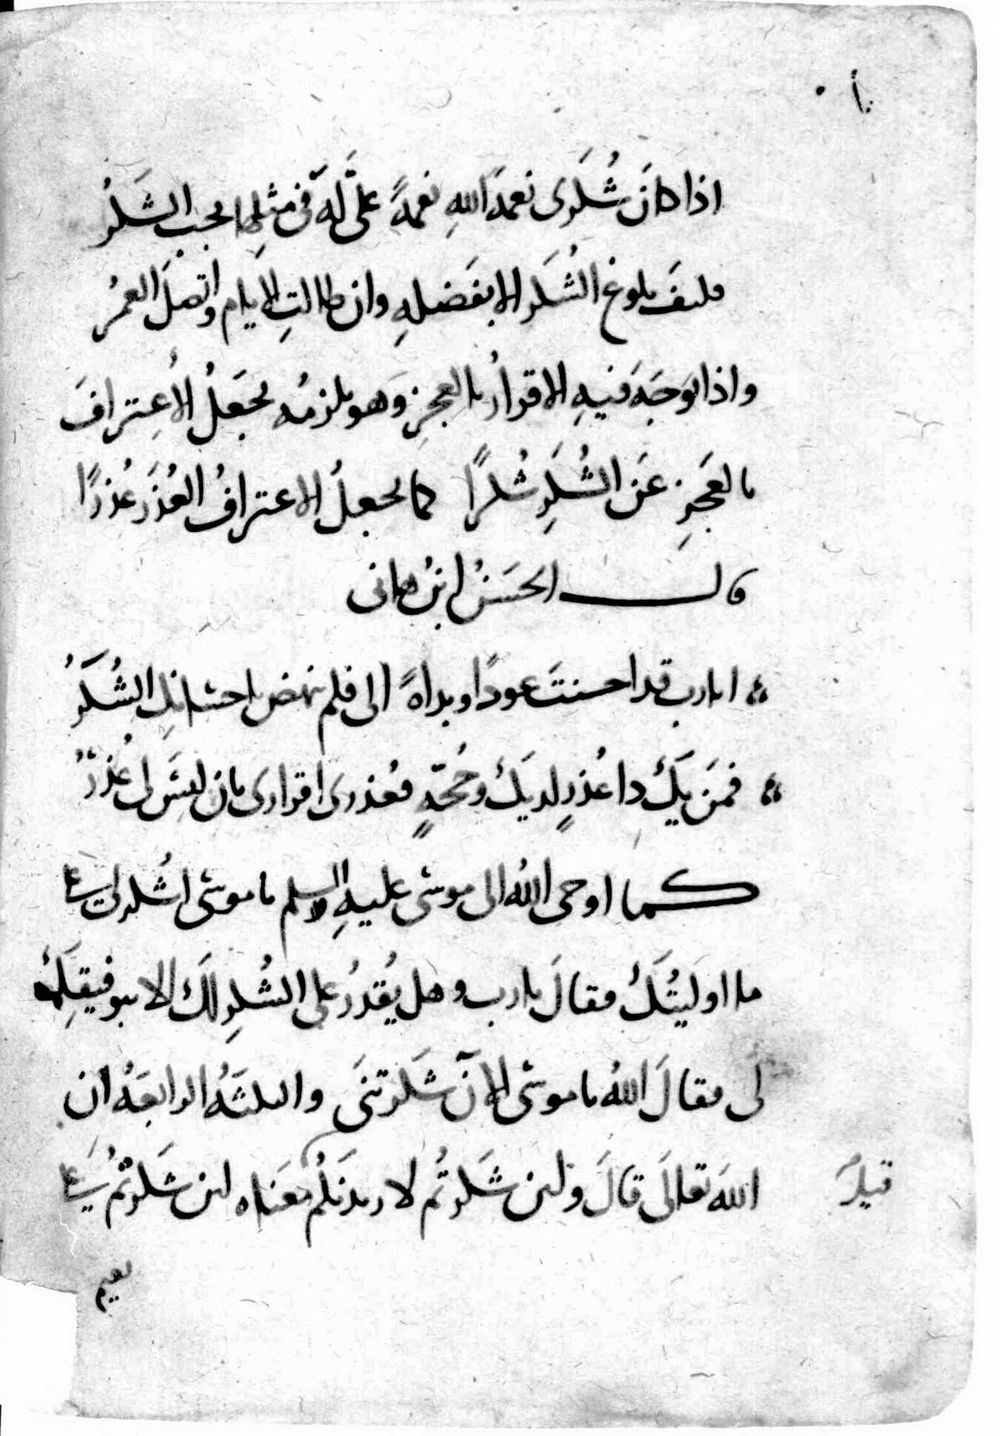 اذا كان شُكرى نعمةَ اللهِ نعمةً علىَّ لهُ فى مثلِها يجب الشكرُ
فكيف بلوغ الشكر الا بفضلهِ وان طالتِ الايام واتصلَ العمرُ
واذا توجهَ فيهِ الاقرارُ بالعجزِ وهو يلزمُه يجعلُ الاعترافَ
بالعجزِ عن الشكرِ شكرًا كما يجعلُ الاعترافُ العذرَ عذرًا
قال الحسَنُ ابنُ هانى
ايارب قد احسنتَ عودًا وبداةً الى فلم ينهض باحسانِك الشكرُ
فمن يكُ ذا عُذرٍ لديكَ وحُجّةٍ فعذرى اقرارى بان ليسَ لى عُذرُ
كما اوحى اللهُ الى موسى عليهِ السلم يا موسى اشكرلى على
ما اوليتُكَ فقالَ يارب وهل يُقدرُ على الشكرِ لكَ الا بتوفيقِكَ
لى فقالَ اللهُ يا موسى الآنَ شكرتنى والثلثةُ الرابعةُ ان
اللهَ تعالَى قالَ ولئن شكرتُم لازيدنكُم معناه لئن شكرتمُ على
قيل
نعيم